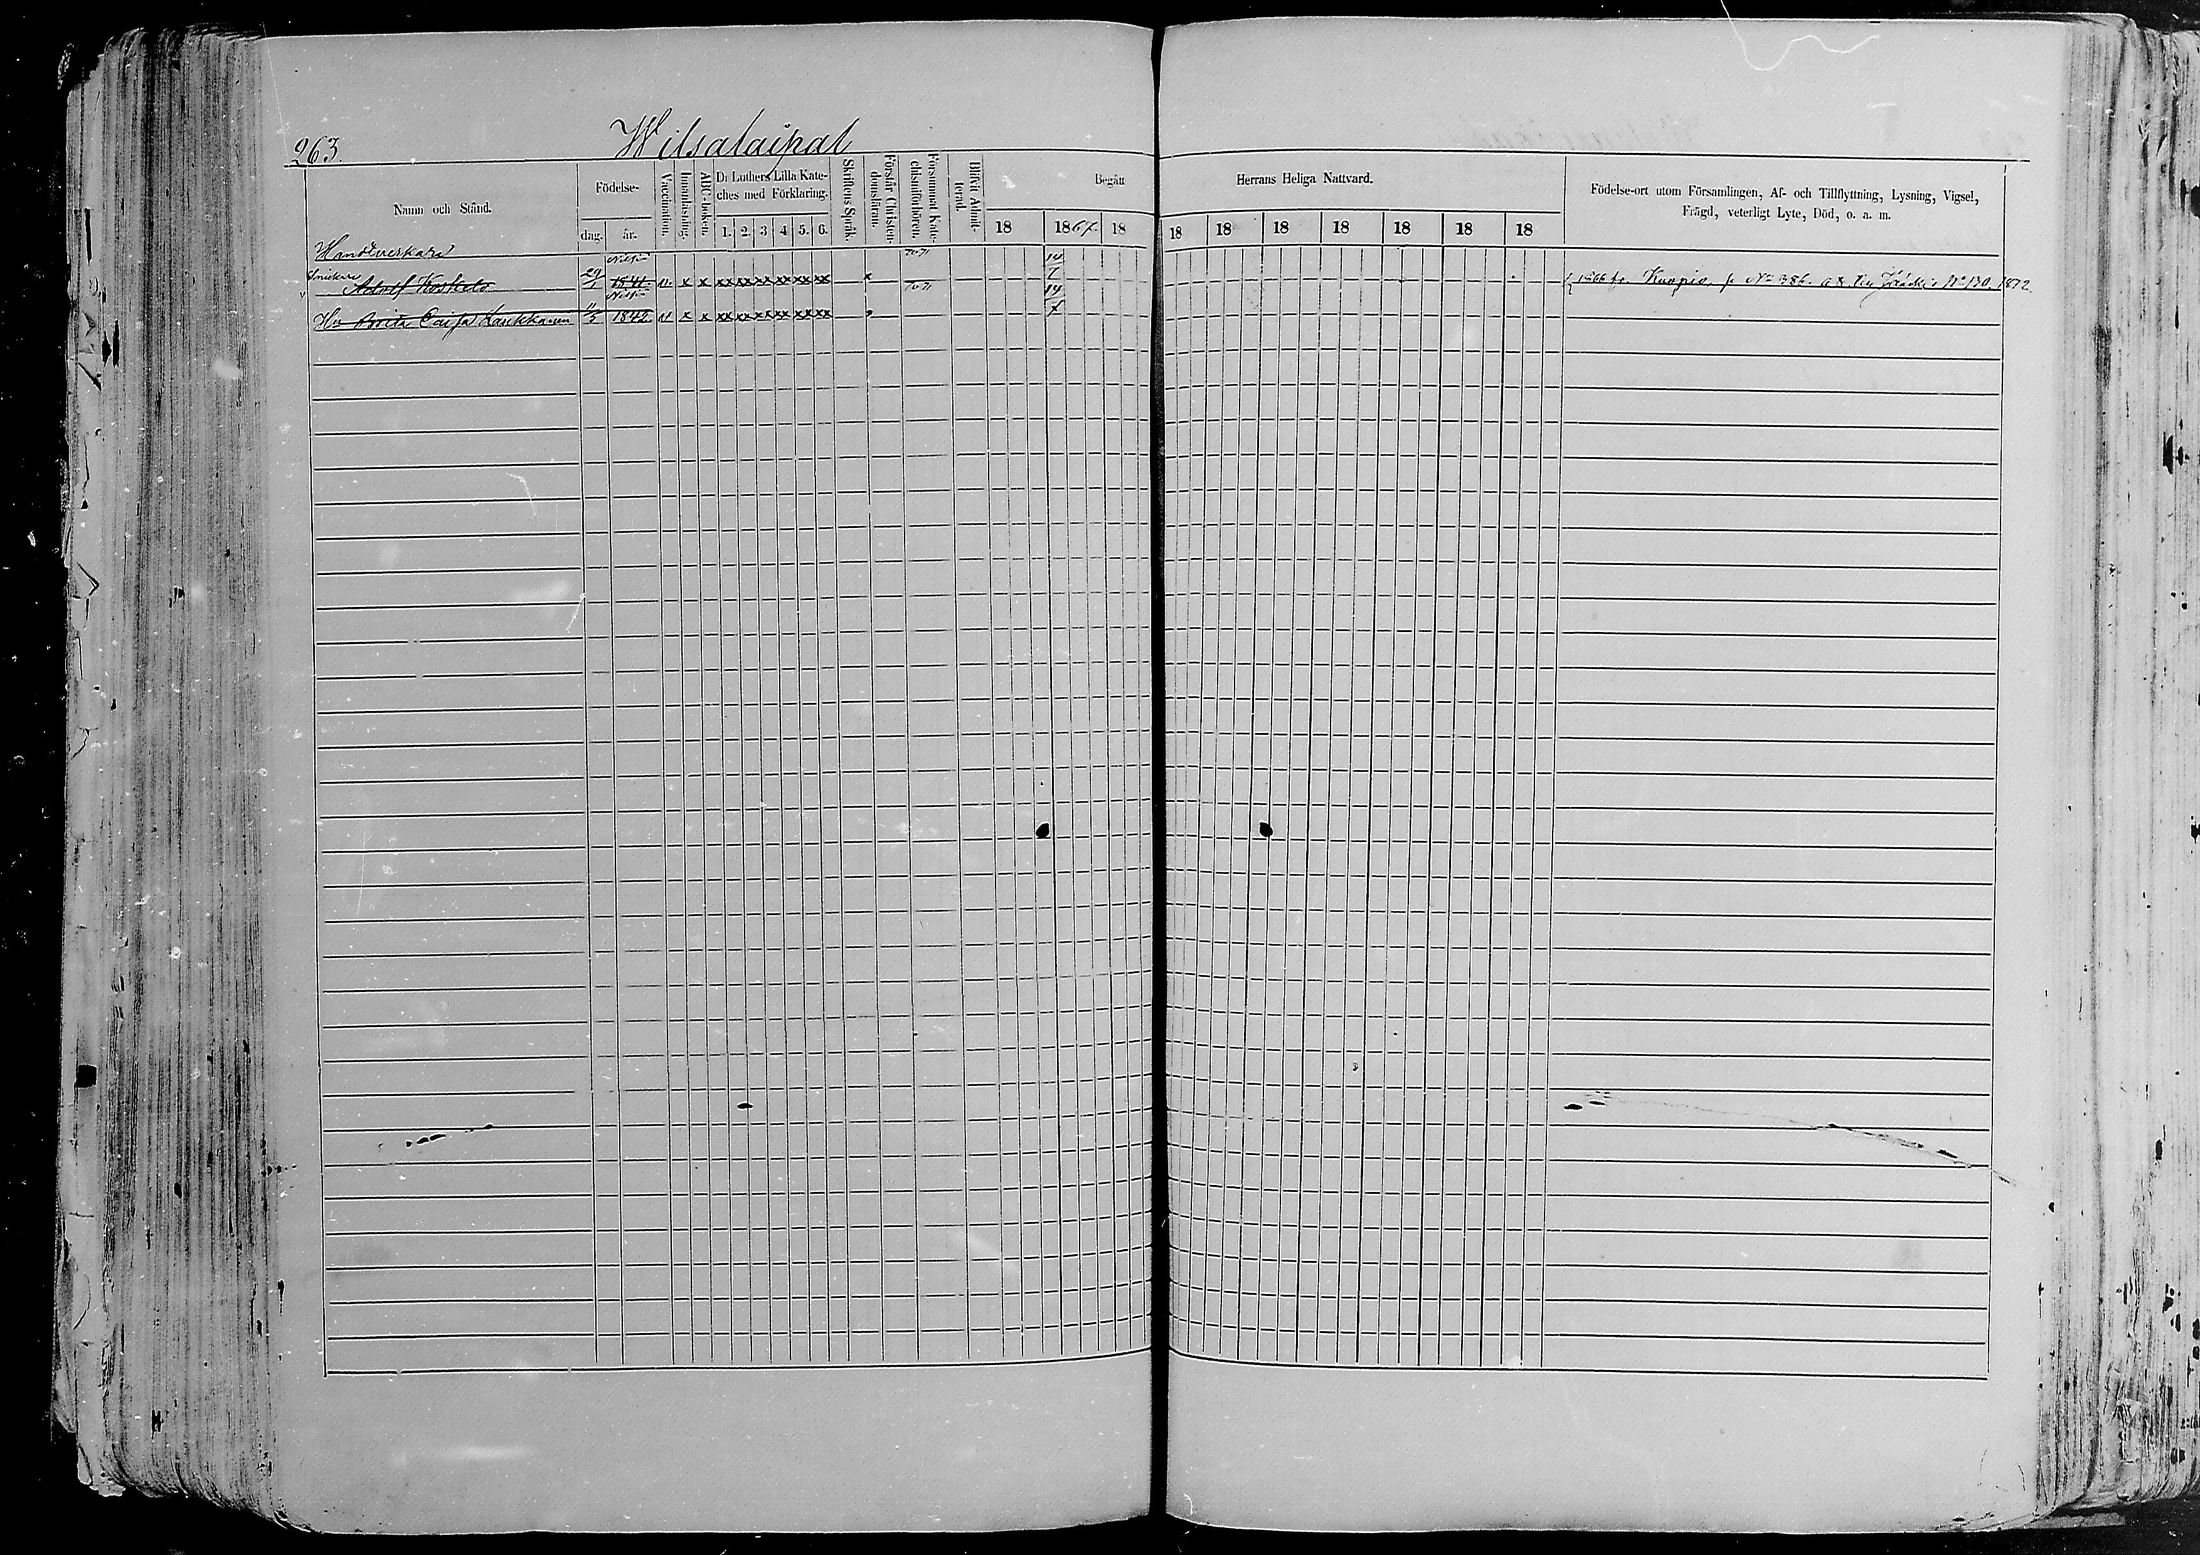 263.
Witsataipal
Namn och Stånd.
Födelse-
dag. år.
Vaccination.
Innanläsning.
ABC-boken.
Dr Luthers Lilla Kate-
ches med Förklaring.
1. 2. 3 4 5. 6.
Skriftens Språk.
Förstår Christen-
domsläran.
Försummat Kate-
chismiförhören.
Blifvit Admit-
terad.
Begått
Herrans Heliga Nattvard.
18 1867. 18 18 18 18 18 18 18 18
Födelse-ort utom Församlingen, Af- och Tillflyttning, Lysning, Vigsel,
Frägd, veterligt Lyte, Död, o. a. m.
Handtverkare
Snickare
Adolf Koskelo 29/1 1841. v. x x xx xx xx xx xx xx x 14/7 1866 fr. Kuopio p. No 386. 1872
Hu Brita Caisa Kaukkanen 11/3 1842 v x x xx xx xx xx xx xx 14/7